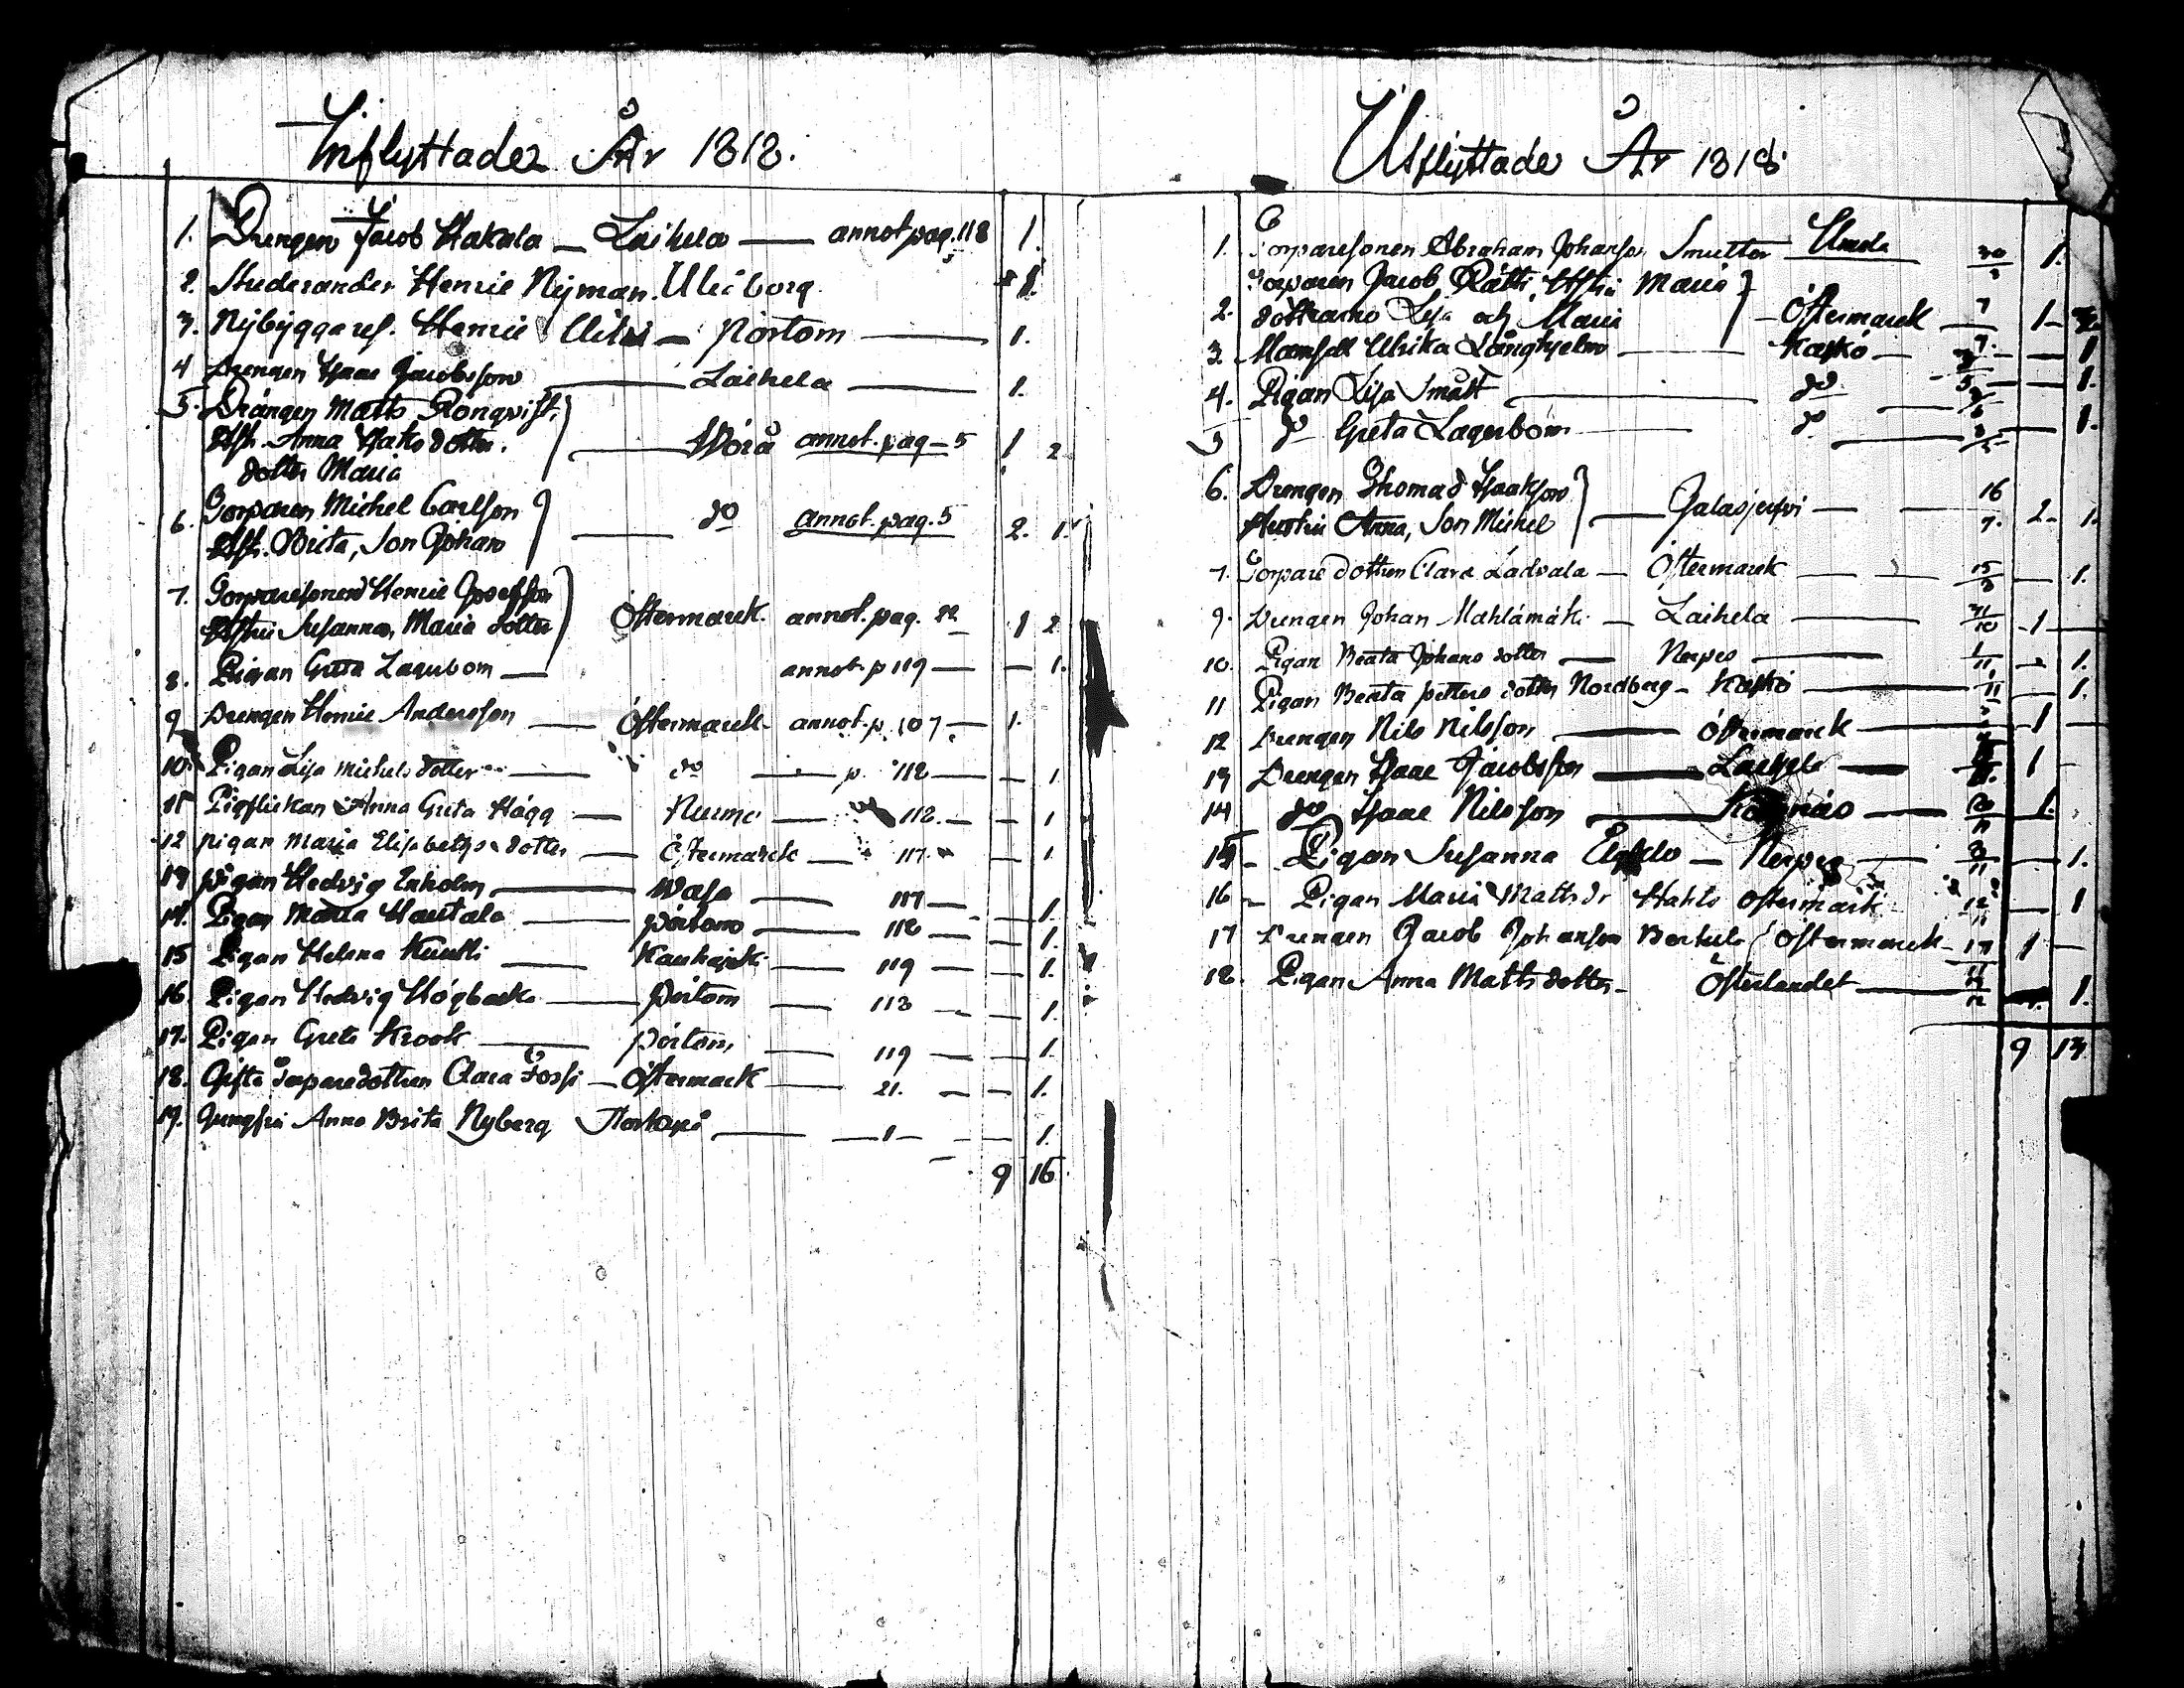 Inflyttader År 1818.
1. Drengen Jacob Hakala — Laihela — annot pag. 118 1.
2. Studerander Henric Nyman. Uleåborg 1.
3. Nybyggares. Henric — Pörtom — 1.
4 Drengen Isaac Jacobsson — Laihela — 1.
5. Drängen Matts Rönqvist
Hst. Anna Isaks dotter. — Wörå annot. pag — 5 1 2
dotter Maria
6. Torparen Michel Carlson — do annot. pag. 5 2. 1.
Hst. Brita, Son Johan
7. Torparesonen Henric Josefsson
Hustru Susanna, Maria dotter Östermark. annot. pag. 22 1 2
8. Pigan Greta Lagerbom — annot. p 119 — — 1.
9 Drengen Henric Andersson — Östermark annot. p. 107 — 1.
10. Pigan Lisa Michels dotter — do — p. 118 — — 1.
11 Pigflickan Anna Greta Hägg — Nurmo — 112. — — 1
12 pigan Maria Elisabeths dotter — Östermark — 117. — 1.
13 pigan Hedvig Enholm — Wasa — 117 — — 1.
14. Pigan Maria Hautala — pörtom — 118 — — 1.
15 Pigan Helena — Kauhajoki — 119 — — 1.
16 Pigan Hedvig Högbacka — Pörtom — 113 — — 1.
17. Pigan Greta Krook — Pörtom — 119 — — 1.
18. Gifta Torparedottren Clara Fossi — Östermark — 21. — — 1.
19. Jungfru Anna Brita Nyberg — 1 — — 1.
9 16
Utflyttade År 1818
1. Torparesonen Abraham Johansson Smutter Umeå 30/3 1.
2. Torparen Jacob Rätti, Hstru Maria
döttrarne Lisa och Maria — Östermark — 7/7. 1
3. Mamsell Ulrika Långhjelm — Kaskö — — 1
4. Pigan Lisa Smått — do — 1.
5 do Greta Lagerbom — do — 1.
6. Drengen Thomas Isaksson
Hustru Anna, Son Michel — Jalasjerfvi — 16/7. 2. 1.
7. Torpare dottren Clara Ladvala — Östermark — 15/9 — 1.
9. Drengen Johan Mahlamäki — Laihela — 31/10 1 —
10. Pigan Beata Johans dotter — Nerpes — 1/11 — 1.
11 Pigan Beata petters dotter Nordberg — Kaskö — 1/11 — 1.
12 Drengen Nils Nilsson — Östermark — 1 —
13 Drengen Isaac Jacobsson — Laihela — 1 —
14 do Isaac Nilsson — — 20/11 1.
15 — Pigan Susanna — Nerpes — 3/11 — 1.
16 — Pigan Maria Mattsdr Hahto Östermark — 1
17 Drengen Jacob Johanson Bertula Östermark — 1 —
18. Pigan Anna Matts dotter — Österlandet — 1.
9 13